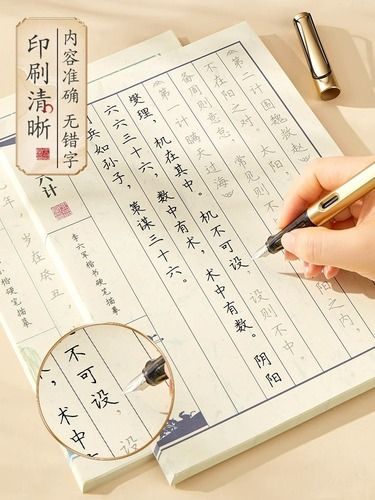 印刷清晰
内容准确 无错字
《第二计 围魏救赵》
不在阳之对。太阳,
备周则意怠,常见则不
之内,
《第一计 瞒天过海》
燮理,机在其中。机不可设,设则不中。
六六三十六,数中有术,术中有数。阴阳
兵如孙子,策谋三十六。
六计
李六军楷书硬笔描摹
年,岁在癸丑,
楷硬笔描摹
不可设,设
,术中